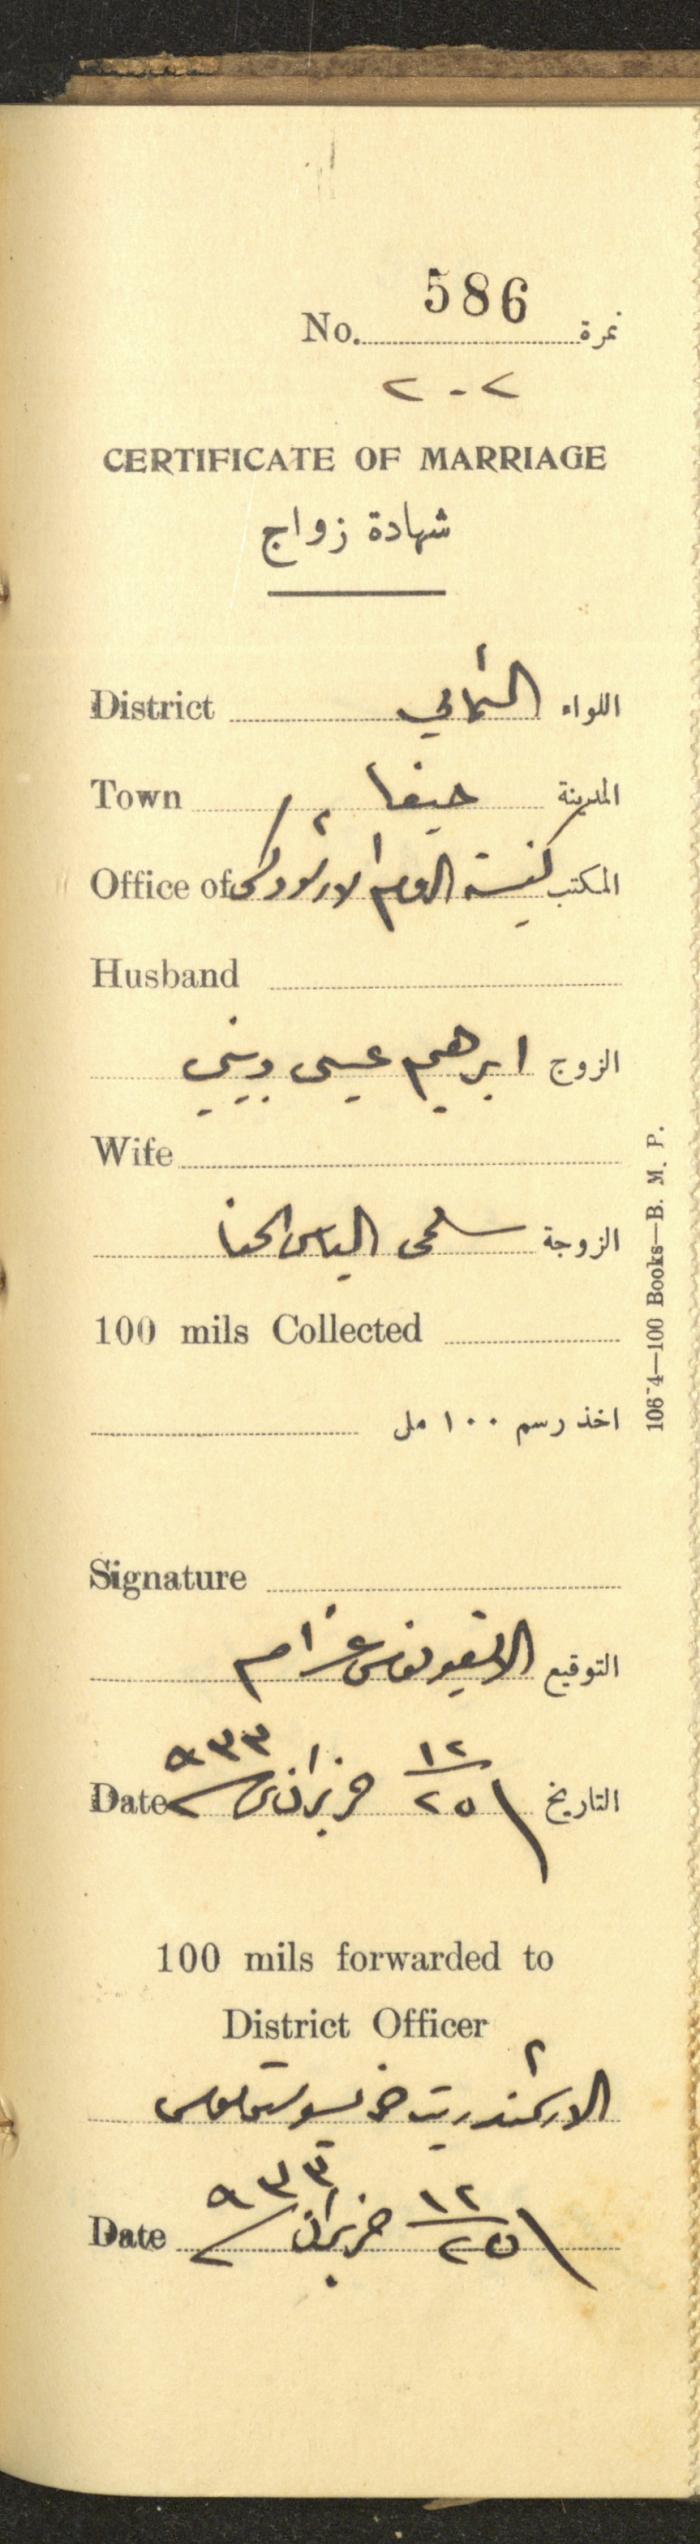 No. 586 نمرة
٢٠٢
CERTIFICATE OF MARRIAGE
شهادة زواج
District الشمالي اللواء
Town حيفا المدينة
Office of كنيسة الروم الارثوذكس المكتب
Husband
ابرهيم عيسى الزوج
Wife
سلمى الياس الحنا الزوجة
100 mils Collected
اخذ رسم ١٠٠ مل
Signature
التوقيع
Date ١٢/٢٥ حزيران ٩٣٣ التاريخ
100 mils forwarded to
District Officer
الارشمندريت
Date ١٢/٢٥ حزيران ٩٣٣
106 4—100 Books—B. M. P.